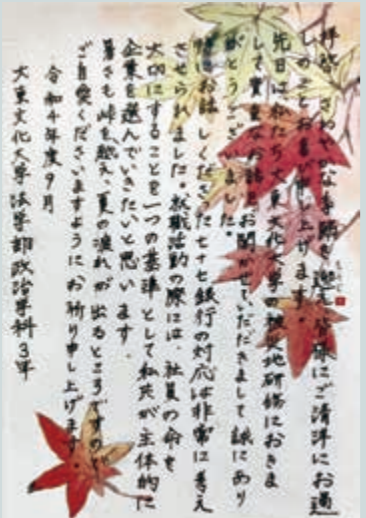 拝啓 さわやかな季節を迎え 皆様にご清祥にお過
しのこととお喜び申し上げます。
先日は私たち大東文化大学の被災地研修におきま
して貴重なお話をお聞かせいただきまして誠にあり
がとうございました。
特にお話しくださった七十七銀行の対応は非常に考え
させられました。就職活動の際には、社員の命を
大切にすることを一つの基準として私共が主体的に
企業を選んでいきたいと思います。
暑さも峠を越え、夏の疲れが出るところですので
ご自愛くださいますようにお祈り申し上げます。
令和4年度9月
大東文化大学法学部政治学科3年